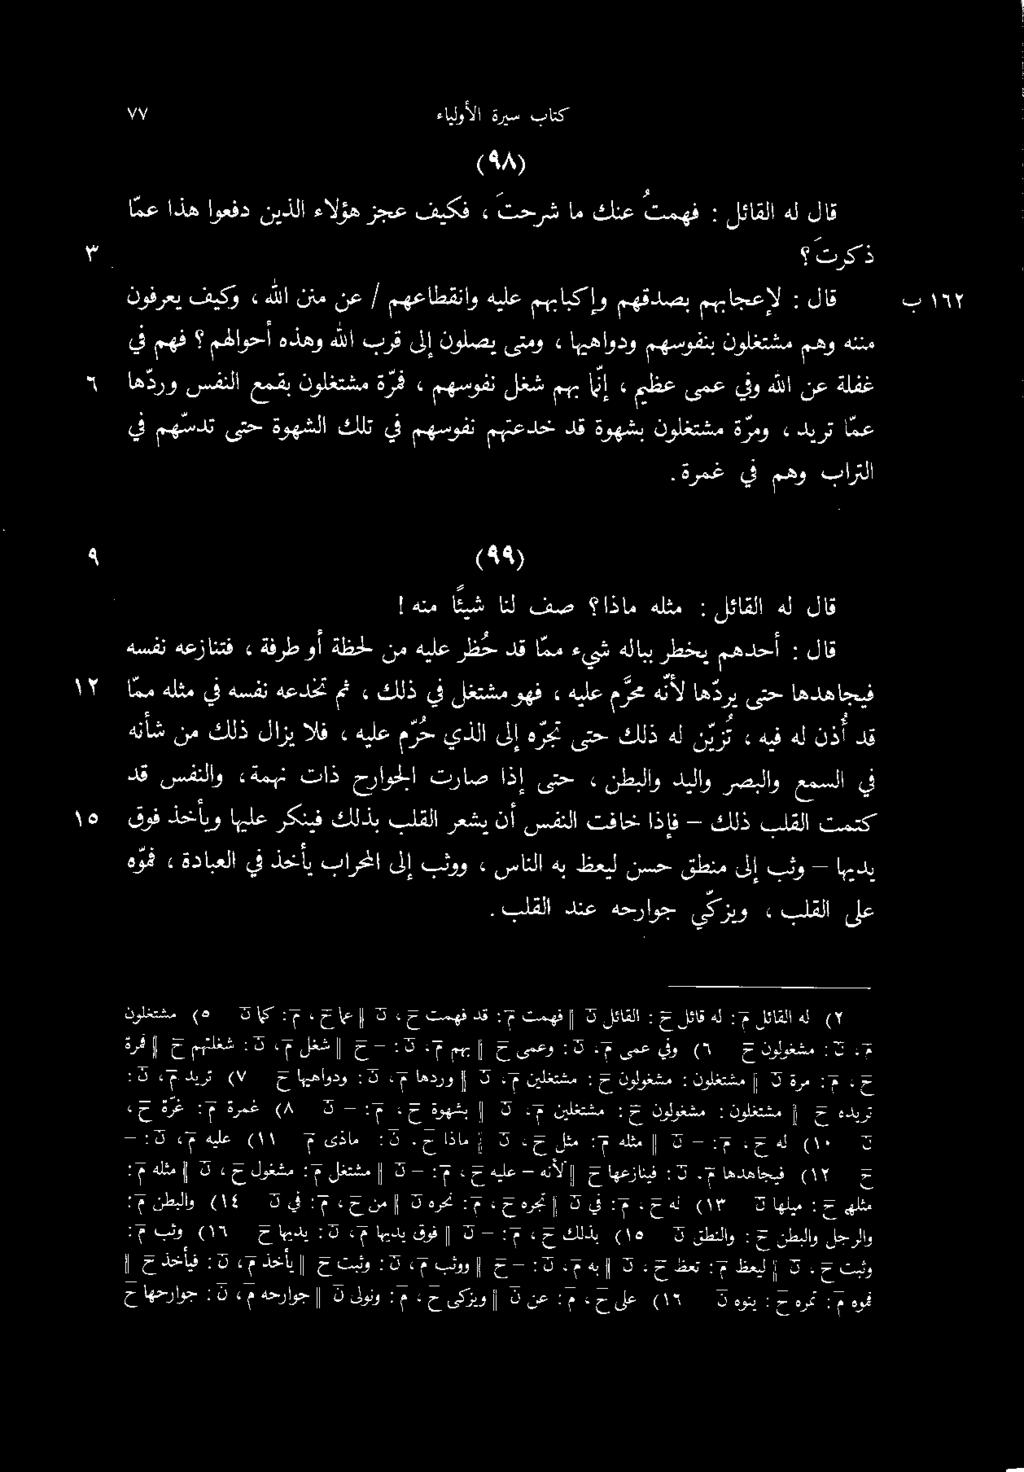 كتاب سيرة الأولياء ٧٧
(٩٨)
قال له القائل : فهمتُ عنك ما شرحتَ ، فكيف عجز هؤلاء الذين دفعوا هذا عمّا
ذكرتَ؟ ٣
١٦٢ ب قال : لإعجابهم بصدقهم وإكبابهم عليه وانقطاعهم / عن منن الله ، وكيف يعرفون
مننه وهم مشتغلون بنفوسهم ودواهيها ، ومتى يصلون إلى قرب الله وهذه أحوالهم ؟ فهم في
غفلة عن الله وفي عمى عظيم ، إنّما بهم شغل نفوسهم ، فمرّة مشتغلون بقمع النفس وردّها ٦
عمّا تريد ، ومرّة مشتغلون بشهوة قد خدعتهم نفوسهم في تلك الشهوة حتى تدسّهم في
التراب وهم في غمرة .
(٩٩) ٩
قال له القائل : مثله ماذا؟ صف لنا شيئًا منه !
قال : أحدهم يخطر بباله شيء ممّا قد حُظر عليه من لحظة أو طرفة ، فتنازعه نفسه
فيجاهدها حتى يردّها لأنّه محرّم عليه ، فهو مشتغل في ذلك ، ثم تخدعه نفسه في مثله ممّا ١٢
قد أُذن له فيه ، تُزيّن له ذلك حتى تجرّه إلى الذي حُرّم عليه ، فلا يزال ذلك من شأنه
في السمع والبصر واليد والبطن ، حتى إذا صارت الجوارح ذات نهمة ، والنفس قد
كتمت القلب ذلك – فإذا خافت النفس أن يشعر القلب بذلك فينكر عليها ويأخذ فوق ١٥
يديها – وثب إلى منطق حسن ليعظ به الناس ، ووثب إلى المحراب يأخذ في العبادة ، فموّه
على القلب ، ويزكّي جوارحه عند القلب .
٢) له القائل م : له قائل ح : القائل ن ‖ فهمت م : قد فهمت ح ، ن ‖ عما ح ، م : كما ن ٥) مشتغلون
م ، ن : مشغولون ح ٦) وفي عمى م ، ن : وعمى ح ‖ بهم م ، ن : – ح ‖ شغل م ، ن : شغلتهم ح ‖ فمرة
ح ، م : مرة ن ‖ مشتغلون : مشغولون ح : مشتغلين م ، ن ‖ وردها م ، ن : ودواهيها ح ٧) تريد م ، ن :
تريده ح ‖ مشتغلون : مشغولون ح : مشتغلين م ، ن ‖ بشهوة ح ، م : – ن ٨) غمرة م : غرّة ح ،
ن ١٠) له ح ، م : – ن ‖ مثله م : مثل ح ، ن ‖ ماذا ح ، ن : ماذى م ١١) عليه م ، ن : –
ح ١٢) فيجاهدها م ، ن : فينازعها ح ‖ لأنه – عليه ح ، م : – ن ‖ مشتغل م : مشغول ح ، ن ‖ مثله م :
مثلها ح : ميلها ن ١٣) له ح ، م : في ن ‖ تجره ح ، م : تحره ن ‖ من ح ، م : في ن ١٤) والبطن م :
والرجل والبطن ح : والنطق ن ١٥) بذلك ح ، م : – ن ‖ فوق يديها م ، ن : يديها ح ١٦) وثب م :
وثبت ح ، ن ‖ ليعظ م : تعظ ح ، ن ‖ به م ، ن : – ح ‖ ووثب م ، ن : وثبت ح ‖ يأخذ م ، ن : فيأخذ ح ‖
فموه م : تمره ح : ينوه ن ١٦) على ح ، م : عن ن ‖ ويزكى ح ، م : ونولى ن ‖ جوارحه م ، ن : جوارحها ح